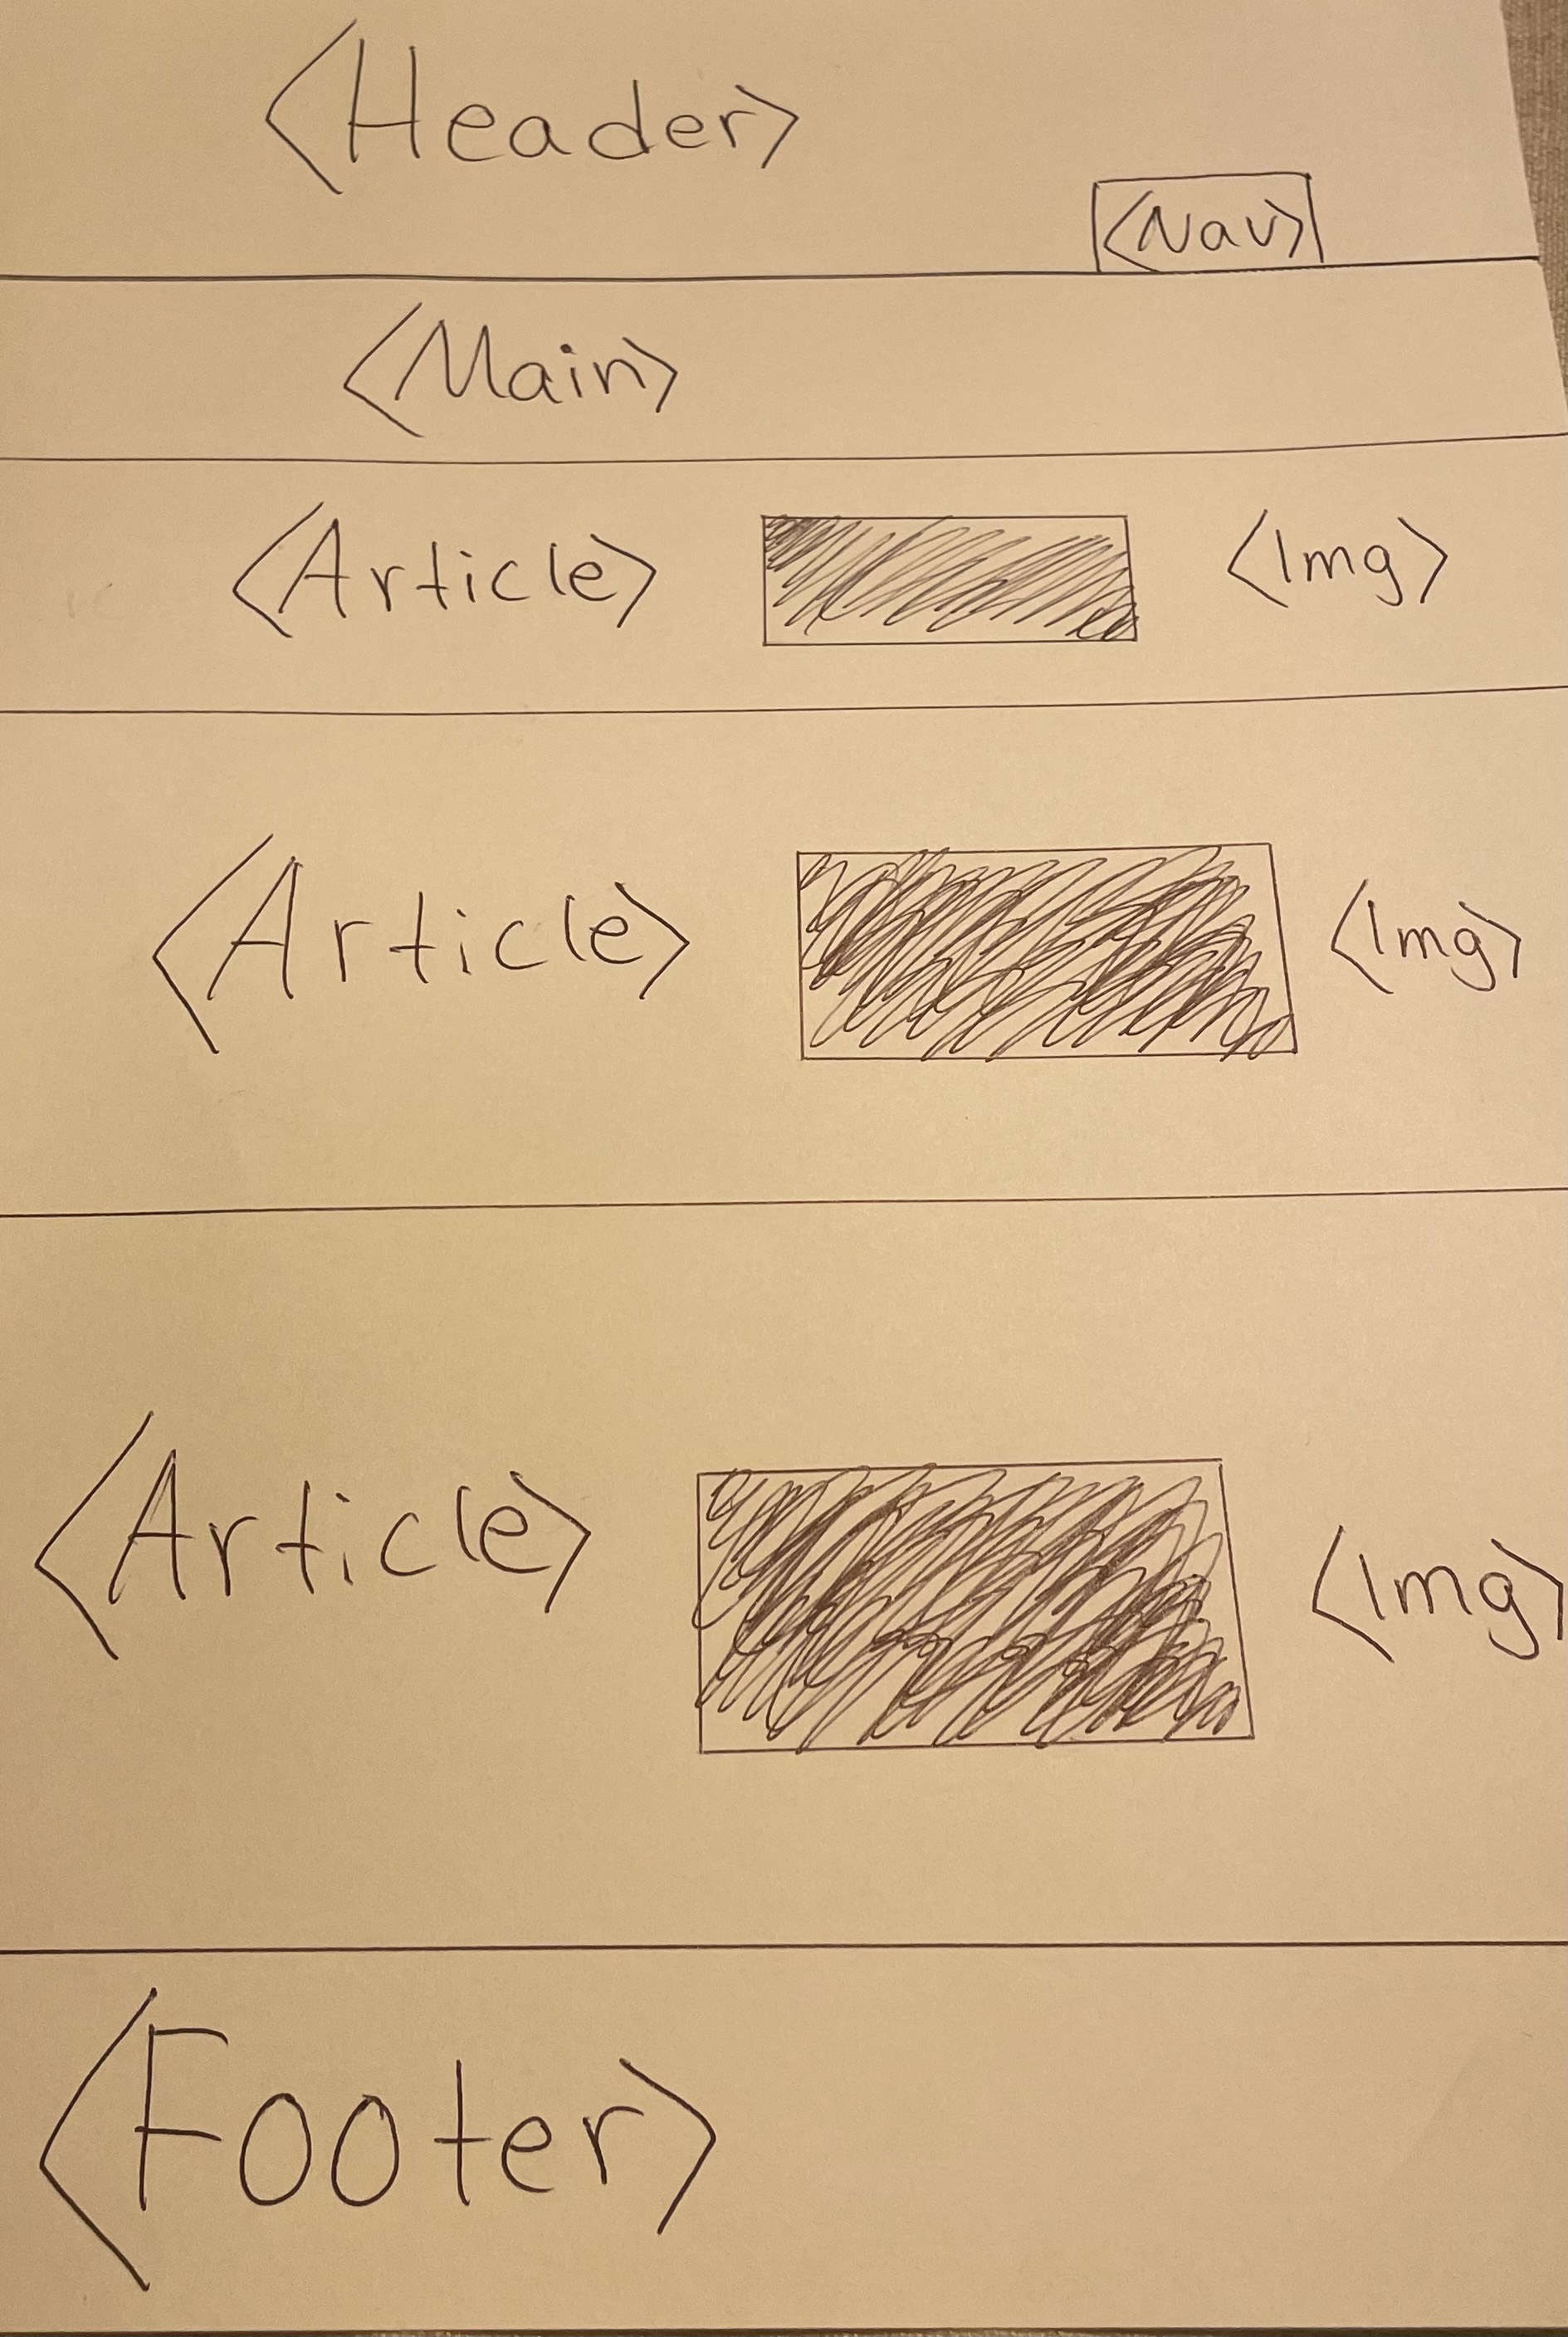 <Header>
<Nav>
<Main>
<Article> <Img>
<Article> <Img>
<Article> <Img>
<Footer>